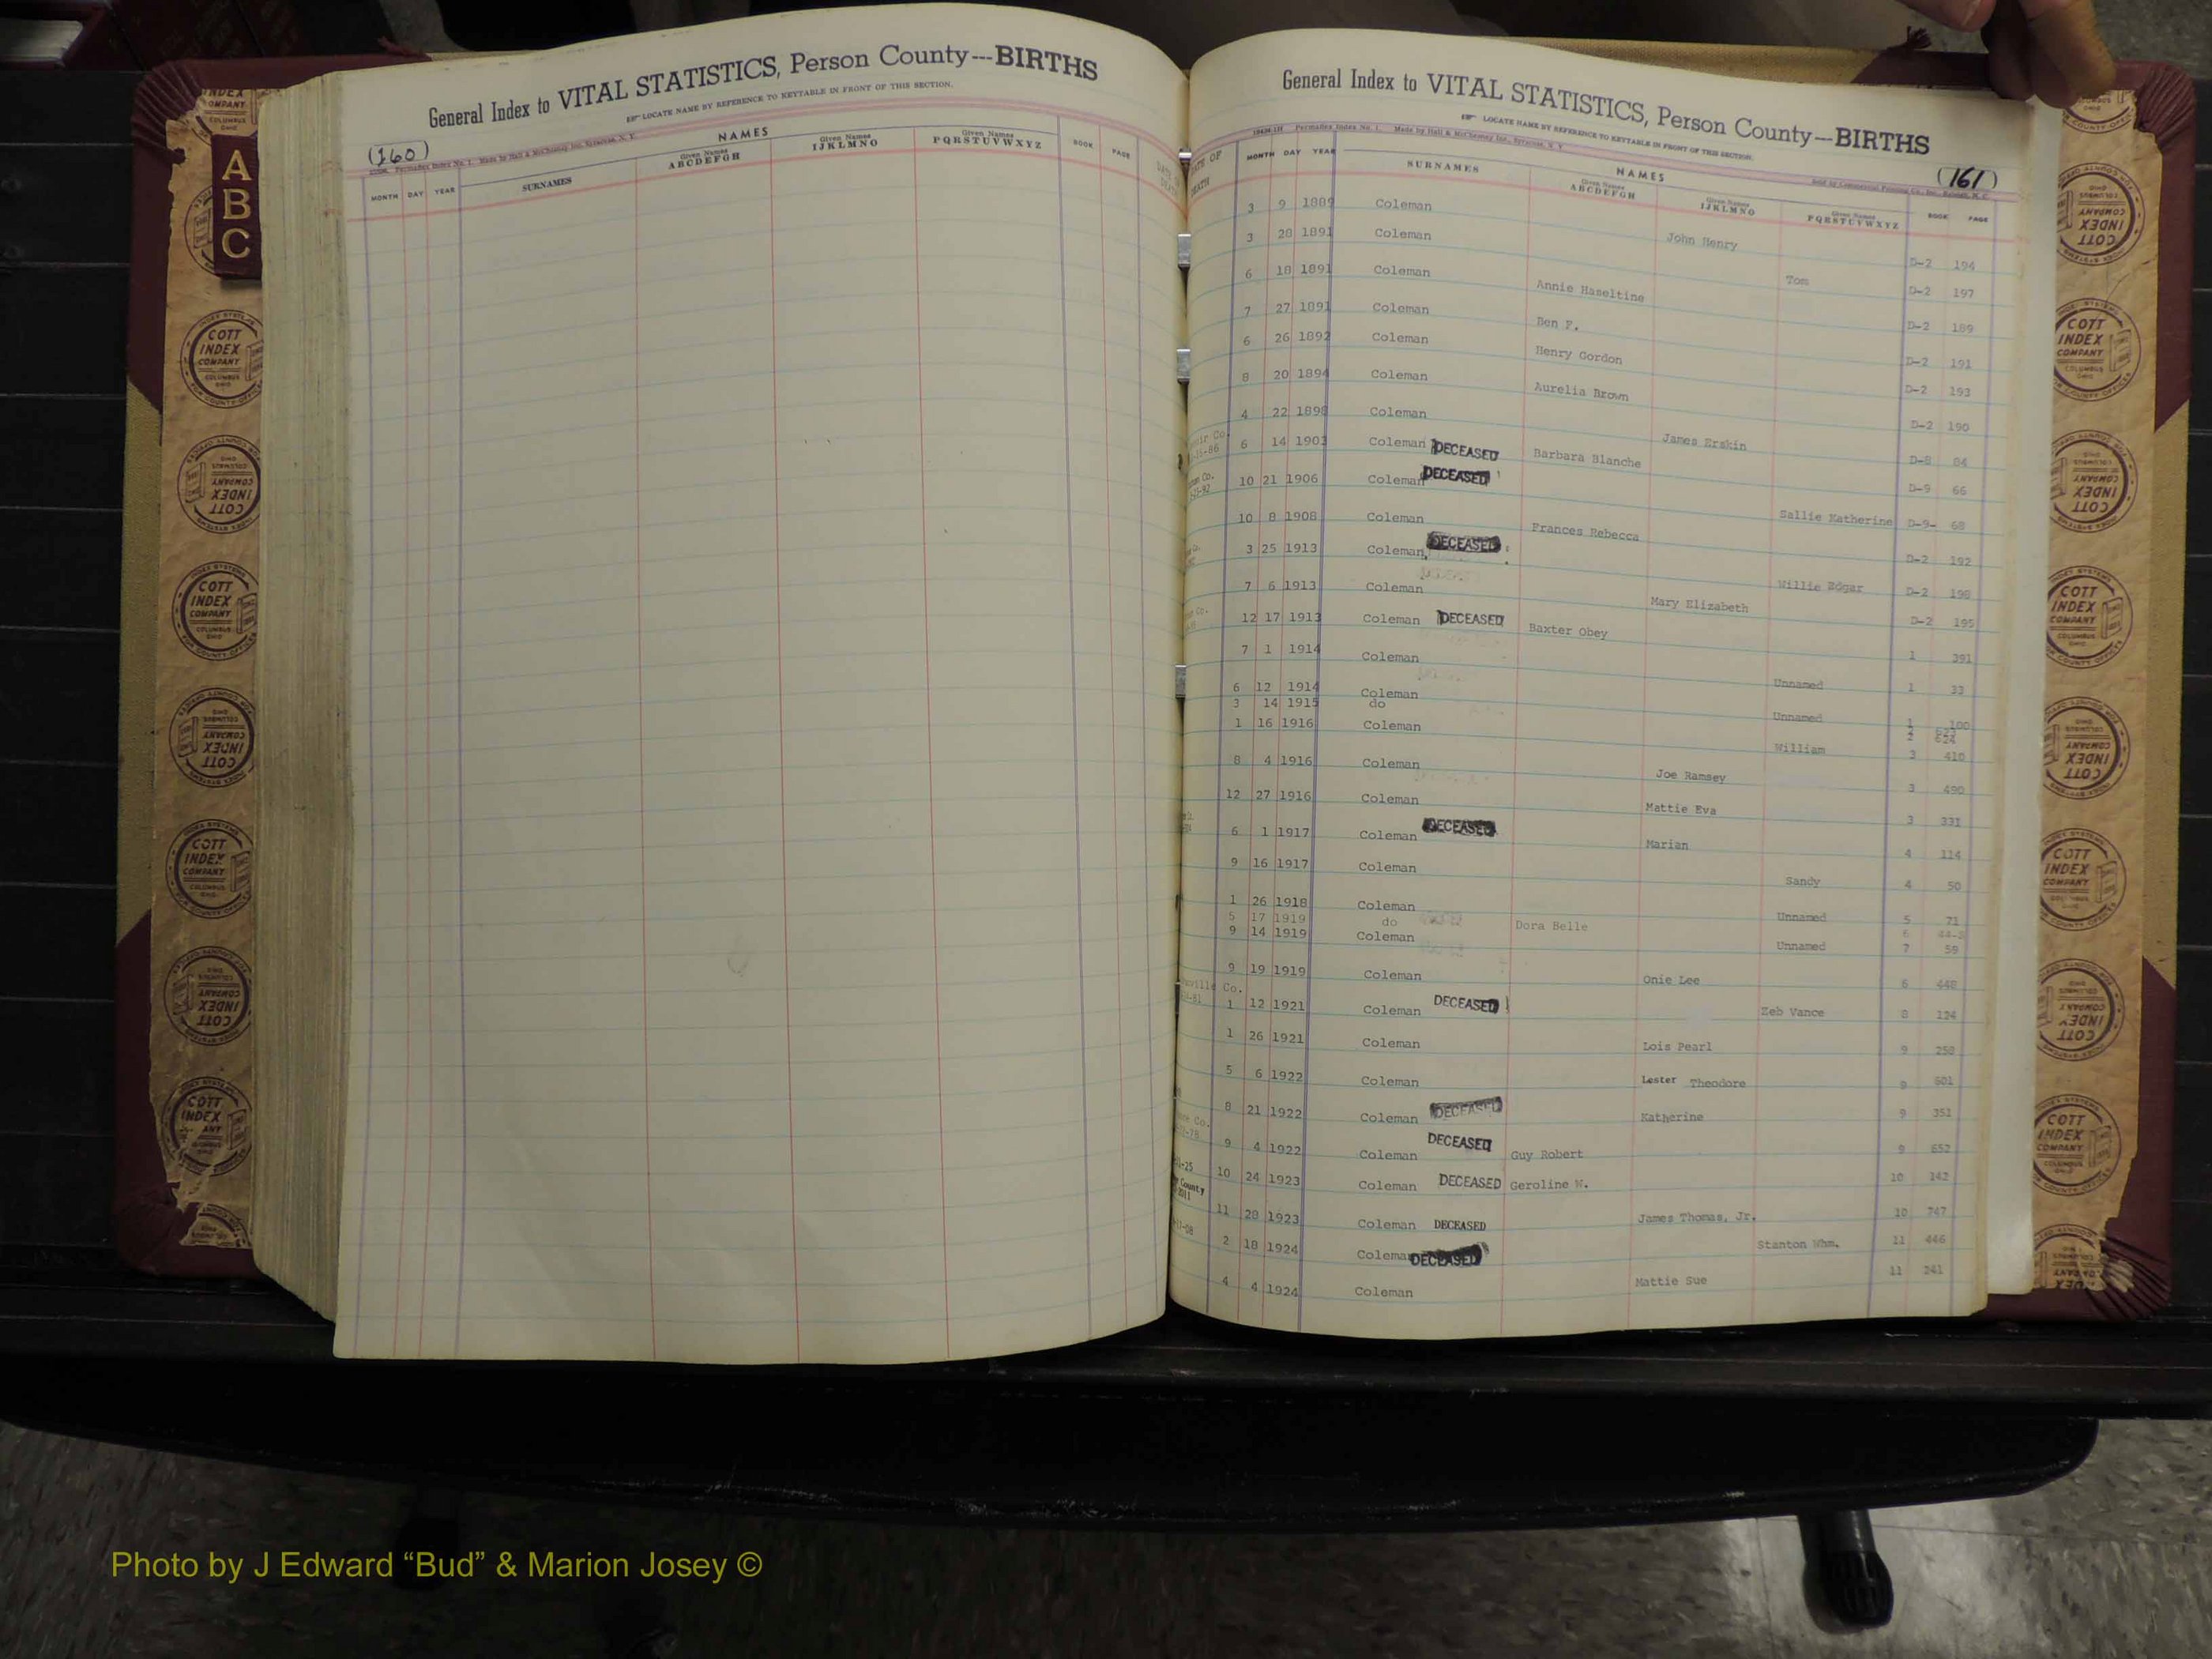 General Index to VITAL STATISTICS, Person County---BIRTHS
LOCATE NAME BY REFERENCE TO KEYTABLE IN FRONT OF THIS SECTION.
(160)
NAMES
MONTH DAY YEAR SURNAMES Given Names ABCDEFGH Given Names IJKLMNO Given Names PQRSTUVWXYZ BOOK PAGE
A
B
C
General Index to VITAL STATISTICS, Person County—BIRTHS
LOCATE NAME BY REFERENCE TO KEYTABLE IN FRONT OF THIS SECTION.
(161)
NAMES
DATE OF DEATH MONTH DAY YEAR SURNAMES Given Names ABCDEFGH Given Names IJKLMNO Given Names PQRSTUVWXYZ BOOK PAGE
3 9 1889 Coleman John Henry D-2 194
3 28 1891 Coleman Tom D-2 197
6 18 1891 Coleman Annie Haseltine D-2 189
7 27 1891 Coleman Ben F. D-2 191
6 26 1892 Coleman Henry Gordon D-2 193
8 20 1894 Coleman Aurelia Brown D-2 190
4 22 1898 Coleman James Erskin D-8 84
6 14 1903 Coleman DECEASED Barbara Blanche D-9 66
10 21 1906 Coleman DECEASED Sallie Katherine D-9- 68
10 8 1908 Coleman Frances Rebecca D-2 192
3 25 1913 Coleman DECEASED Willie Edgar D-2 198
7 6 1913 Coleman Mary Elizabeth D-2 195
12 17 1913 Coleman DECEASED Baxter Obey 1 391
7 1 1914 Coleman Unnamed 1 33
6 12 1914 Coleman Unnamed 1 100
3 14 1915 do 2 624
1 16 1916 Coleman William 3 410
8 4 1916 Coleman Joe Ramsey 3 490
12 27 1916 Coleman Mattie Eva 3 331
6 1 1917 Coleman DECEASED Marian 4 114
9 16 1917 Coleman Sandy 4 50
1 26 1918 Coleman Unnamed 5 71
5 17 1919 do Dora Belle 6
9 14 1919 Coleman Unnamed 7 59
9 19 1919 Coleman Onie Lee 6 448
1 12 1921 Coleman DECEASED Zeb Vance 8 124
1 26 1921 Coleman Lois Pearl 9 258
5 6 1922 Coleman Lester Theodore 9 601
8 21 1922 Coleman DECEASED Katherine 9 351
9 4 1922 Coleman DECEASED Guy Robert 9 652
10 24 1923 Coleman DECEASED Geroline W. 10 142
11 28 1923 Coleman DECEASED James Thomas, Jr. 10 747
2 18 1924 Coleman DECEASED Stanton Whm. 11 446
4 4 1924 Coleman Mattie Sue 11 241
COTT INDEX COMPANY COLUMBUS OHIO
Photo by J Edward “Bud” & Marion Josey ©